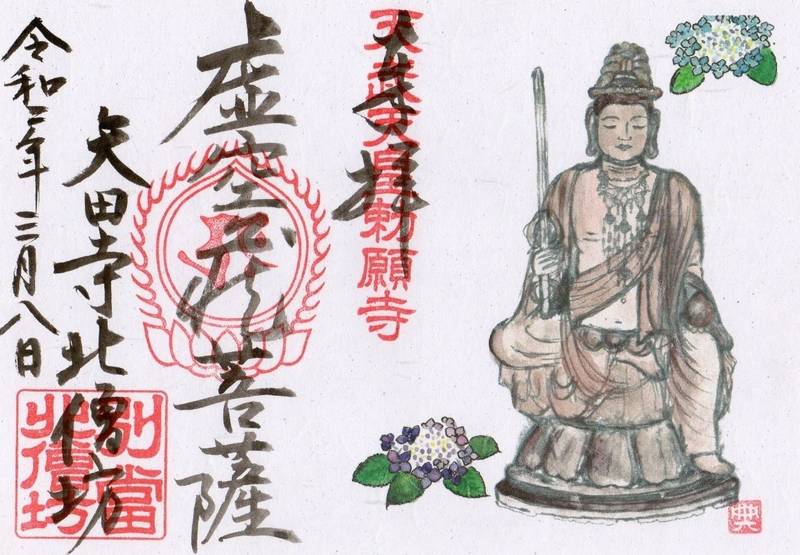 天武天皇勅願寺
奉拝
虚空蔵菩薩
矢田寺北僧坊
令和二年三月八日
別當
北僧坊
典